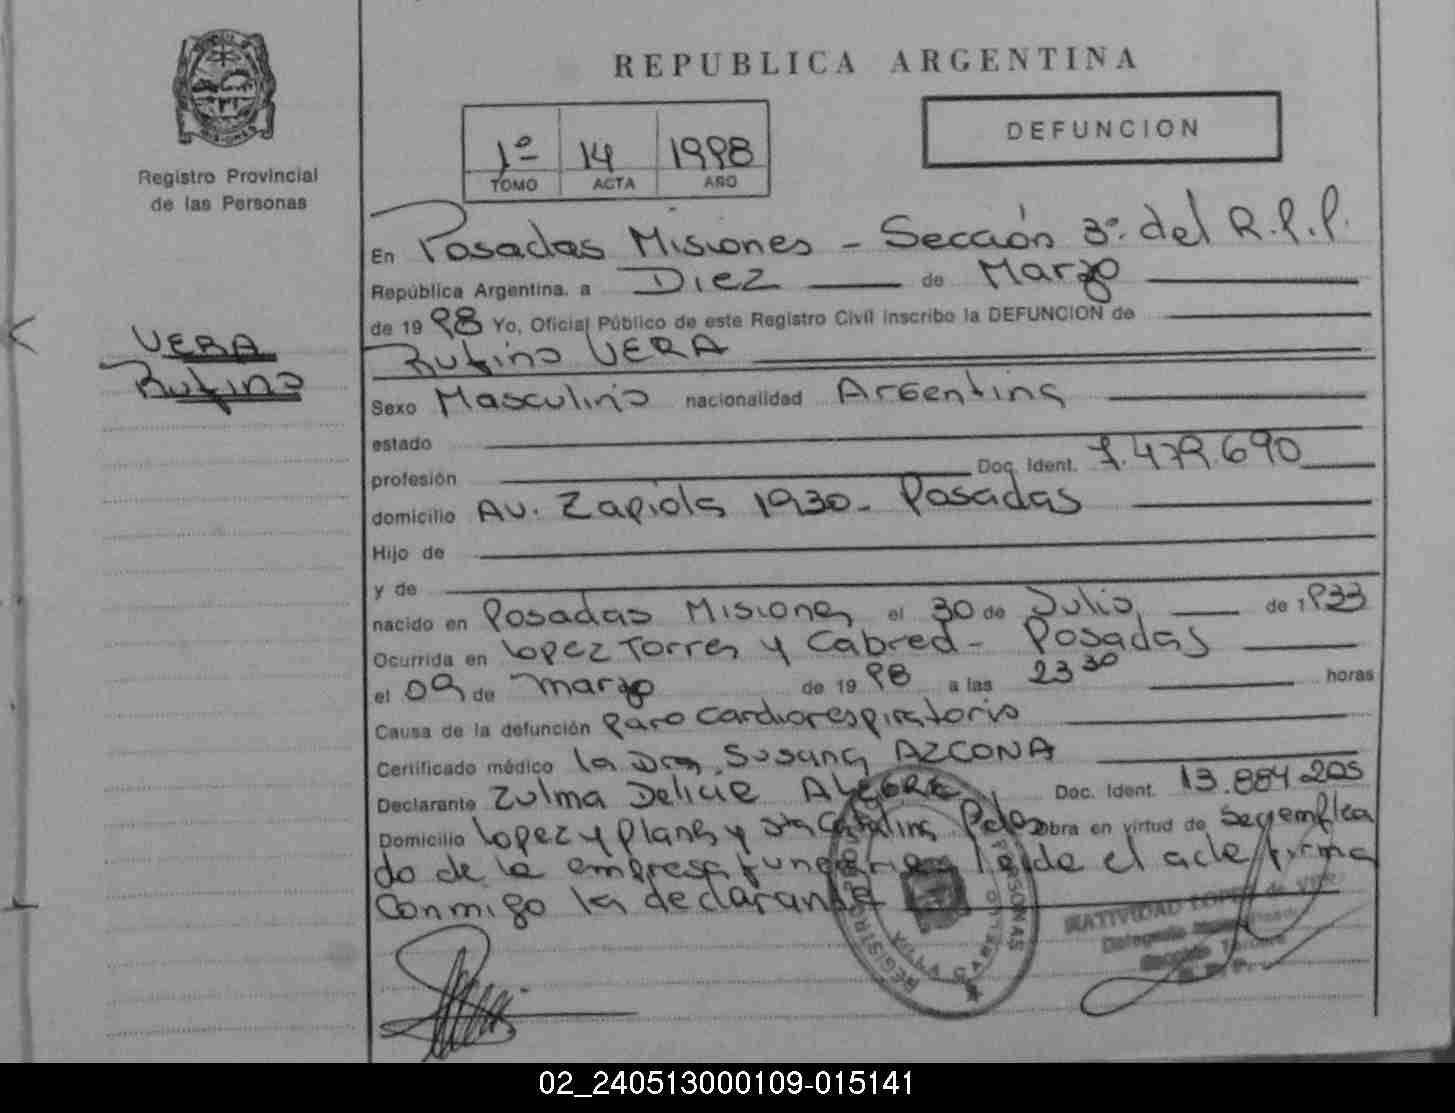 REPUBLICA ARGENTINA
DEFUNCION
1º 14 1998
TOMO ACTA AÑO
Registro Provincial
de las Personas
VERA
Rufino
En Posadas Misiones - Sección 3º. del R.P.P.
República Argentina. a Diez de Marzo
de 1998 Yo, Oficial Público de este Registro Civil inscribo la DEFUNCION de
Rufino VERA
Sexo Masculino nacionalidad Argentina
estado
profesión Doc. Ident. 7.479.690
domicilio Av. Zapiola 1930 - Posadas
Hijo de
y de
nacido en Posadas Misiones el 30 de Julio de 1933
Ocurrida en Lopez Torres y Cabred - Posadas
el 09 de marzo de 1998 a las 23 30 horas
Causa de la defunción paro cardiorespiratorio
Certificado médico la Dra. Susana AZCONA
Declarante Zulma Delicie ALEGRE Doc. Ident. 13.884.205
Domicilio Lopez y Planes y Sta Catalina Pdas obra en virtud de ser emplea
do de la empresa funeraria leída el acta firma
conmigo la declarante
REGISTRO PERSONAS
NATIVIDAD LOPEZ de
02_240513000109-015141